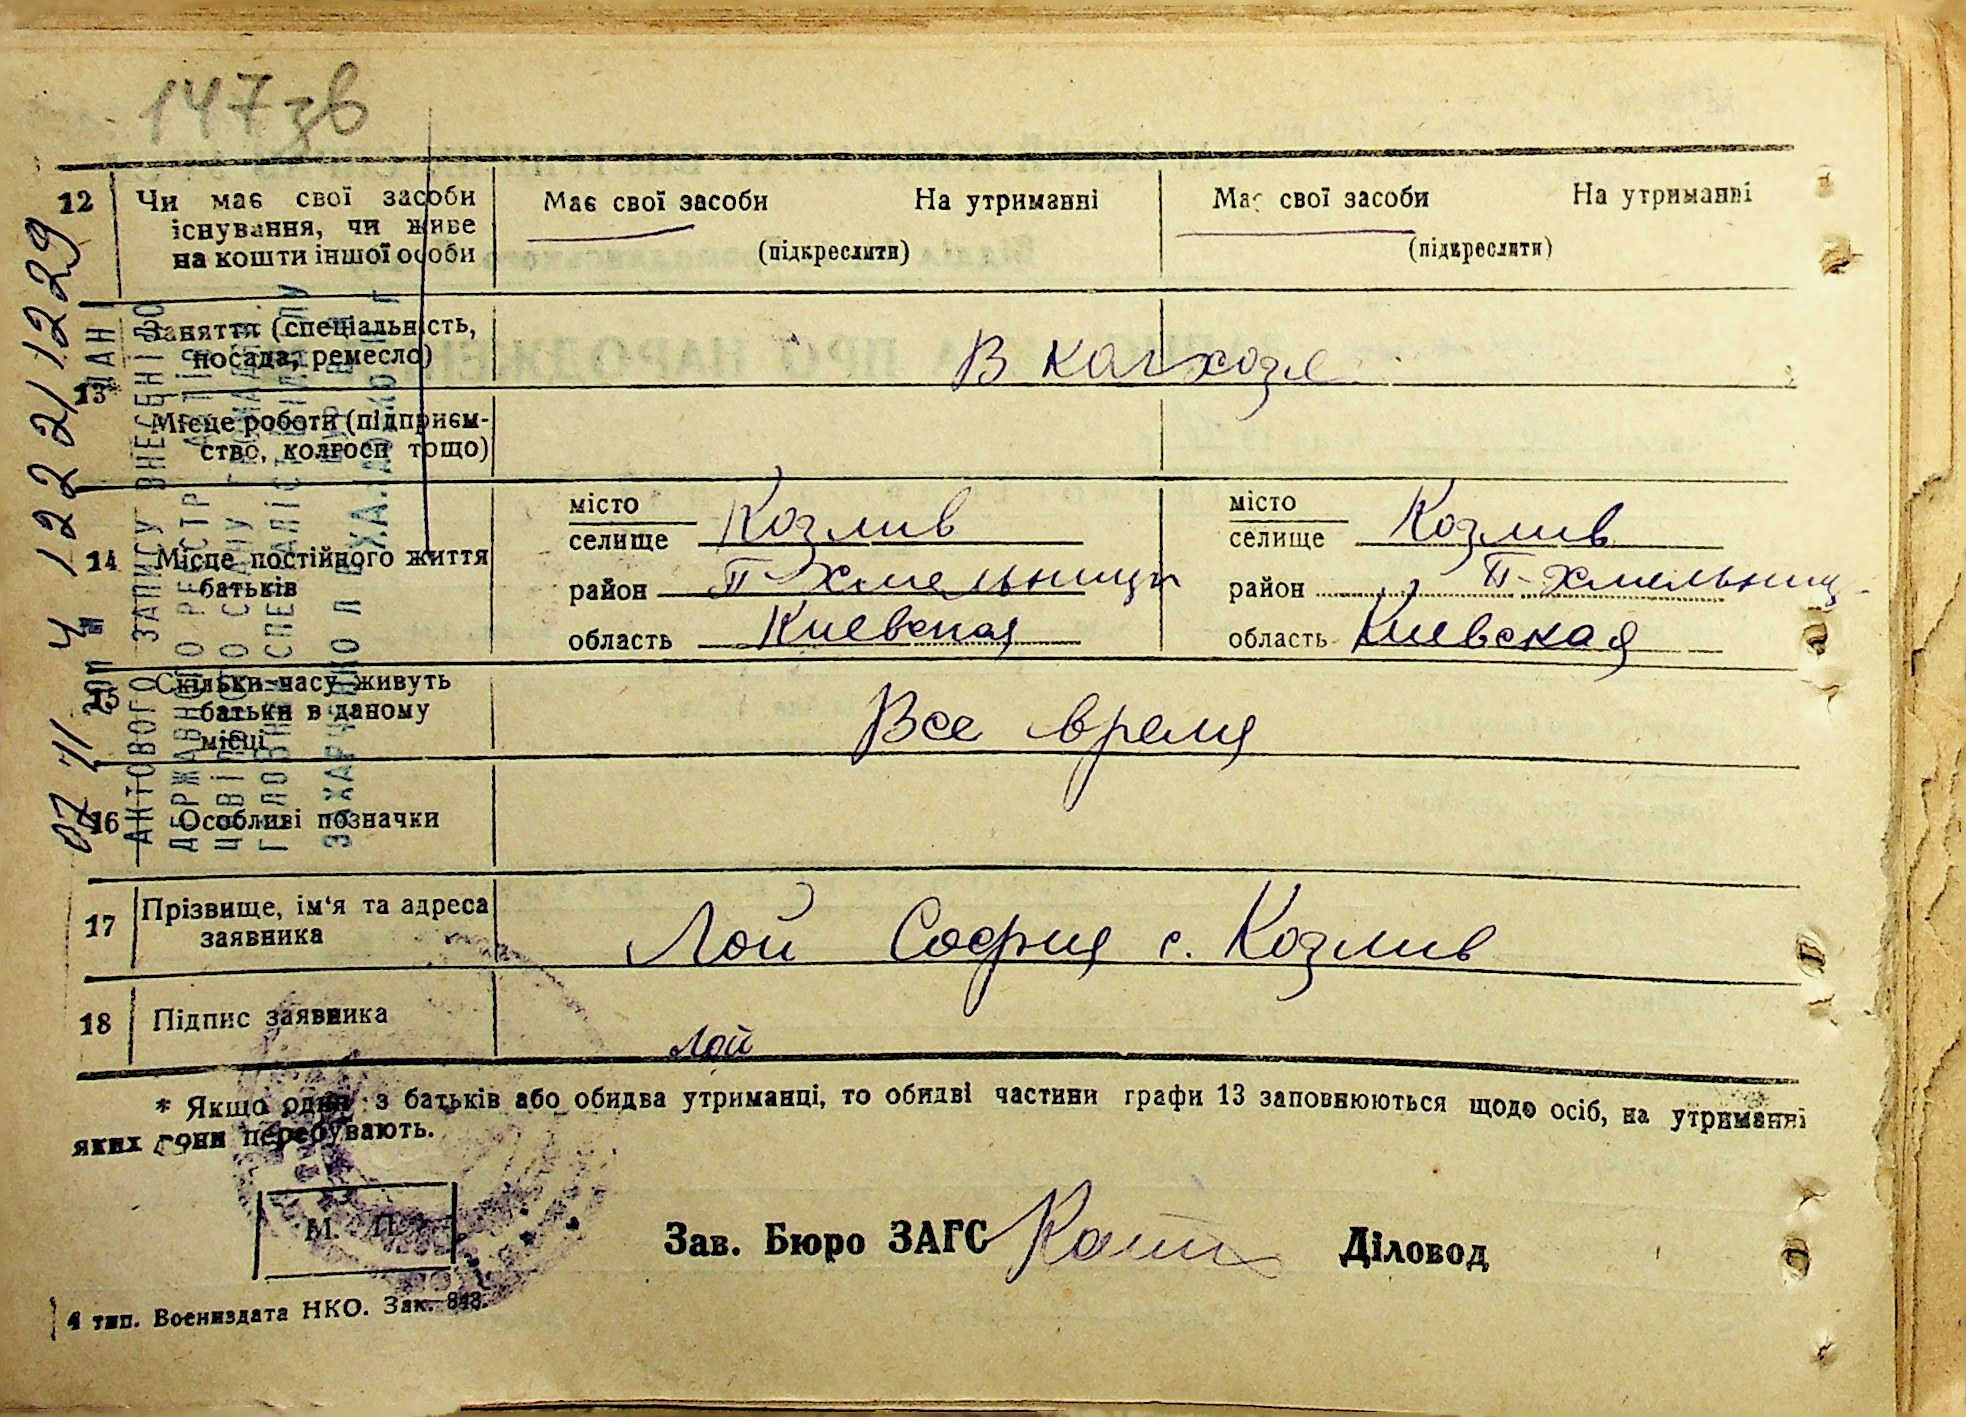 147зв
12 Чи має свої засоби існування, чи живе на кошти іншої особи
Має свої засоби На утриманні
(підкреслити)
Має свої засоби На утриманні
(підкреслити)
13 Заняття (спеціальність, посада, ремесло)
В колхозе
Місце роботи (підприємство, колгосп тощо)
14 Місце постійного життя батьків
місто
селище Козлив
район П-Хмельницк
область Киевская
місто
селище Козлив
район П-Хмельниц
область Киевская
15 Скільки часу живуть батьки в даному місці
Все время
16 Особливі позначки
17 Прізвище, ім'я та адреса заявника
Лой София с. Козлив
18 Підпис заявника
Лой
* Якщо один з батьків або обидва утриманці, то обидві частини графи 13 заповнюються щодо осіб, на утриманні
яких вони перебувають.
М. П.
Зав. Бюро ЗАГС
Діловод
4 тип. Воениздата НКО. Зак. 843.
АКТОВОГО ЗАПИСУ ВНЕСЕНІ ДО
ДЕРЖАВНОГО РЕЄСТР